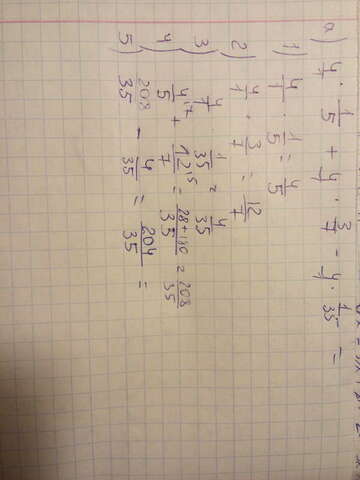 а) 4/1 · 1/5 + 4/1 · 3/7 - 4/1 · 1/35 =
1) 4/1 · 1/5 = 4/5
2) 4/1 · 3/7 = 12/7
3) 4/1 · 1/35 = 4/35
4) 4\7/5 + 12\5/7 = 28+180/35 = 208/35
5) 208/35 - 4/35 = 204/35 =